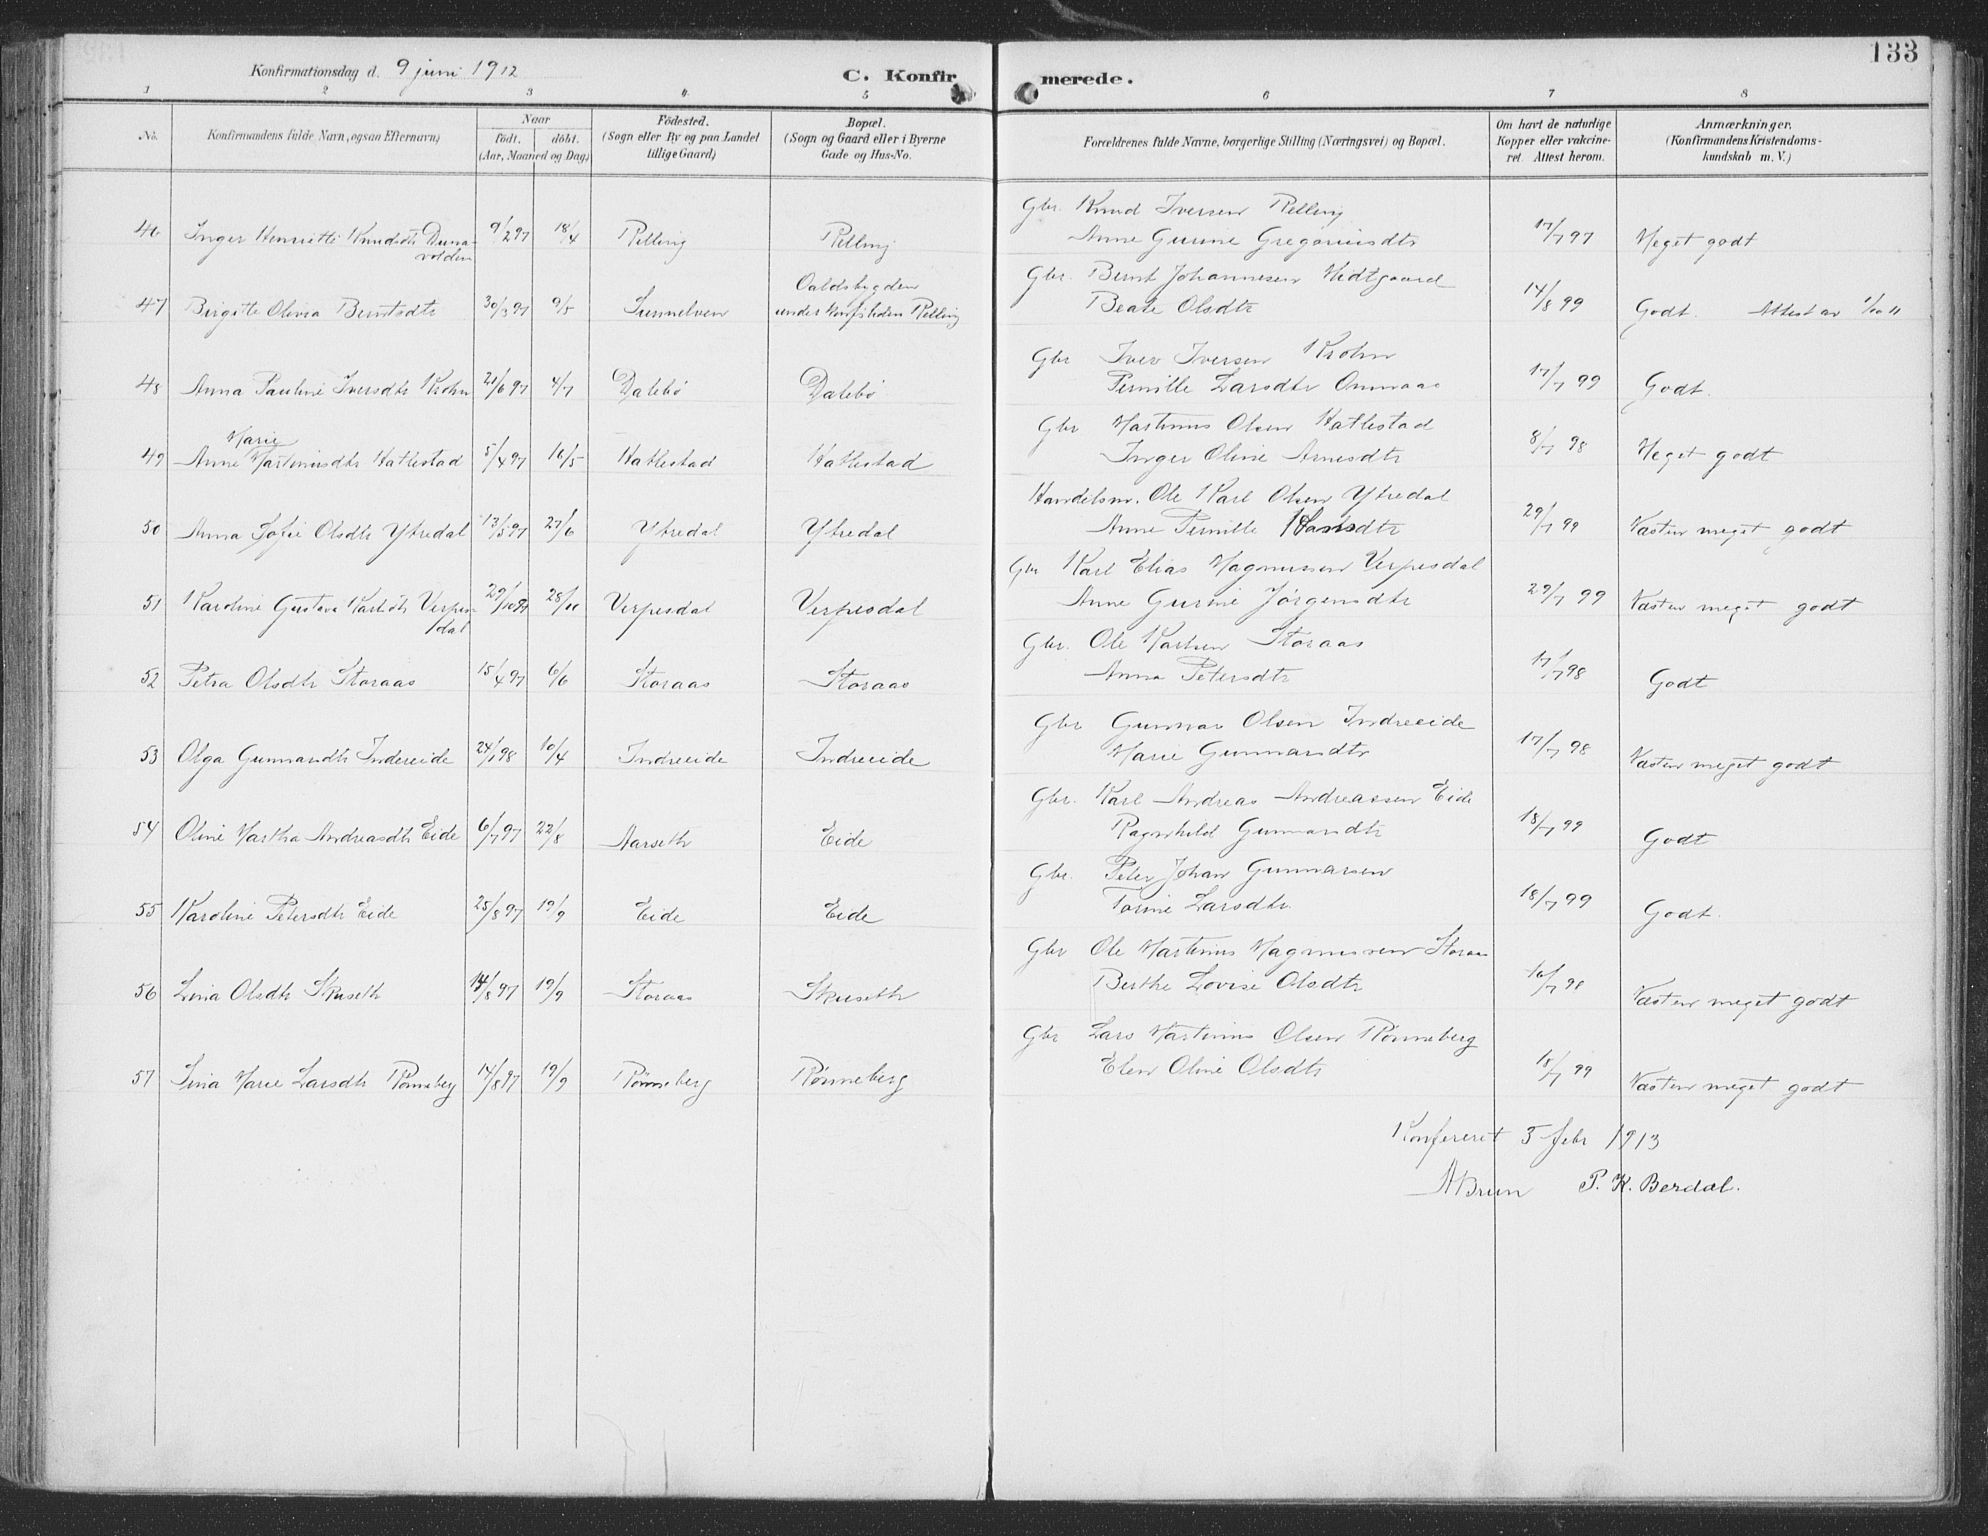 133
Konfirmationsdag d. 9 juni 1912 C. Konfirmerede.
1 2 3 4 5 6 7 8
No. Konfirmandens fulde Navn, ogsaa Efternavn) Naar født. døbt. (Aar, Maaned og Dag) Fødested. (Sogn eller By og paa Landet tillige Gaard) Bopæl. (Sogn og Gaard eller i Byerne Gade og Hus-No. Forældrenes fulde Navne, borgerlige Stilling (Næringsvei) og Bopæl. Om havt de naturlige Kopper eller vakcineret. Attest herom. Anmærkninger. (Konfirmandens Kristendomskundskab m. V.)
Gbr. Knud Iversen Relling
46 Inger Henriette Knudsdtr Dunavolden 9/2 97 18/4 Relling Relling Anne Gurine Gregoriusdtr 17/7 97 Meget godt
Gbr. Bernt Johannesen Hedtgaard
47 Birgitte Olivia Berntsdtr 30/3 97 9/5 Sunnelven Oaldsbygden under Relling Beate Olsdtr 14/8 99 Godt. Attest av 1/10 11
Gbr Iver Iversen Krohn
48 Anna Pauline Iversdtr Krohn 21/6 97 4/7 Dalebø Dalebø Pernille Larsdtr Ommaas 17/7 99 Godt.
Gbr Martinus Olsen Hatlestad
49 Anne Marie Martinusdtr Hatlestad 5/4 97 16/5 Hatlestad Hatlestad Inger Oline Arnesdtr 8/7 98 Meget godt
Handelsm. Ole Karl Olsen Ytredal
50 Anna Sofie Olsdtr Ytredal 13/5 97 27/6 Ytredal Ytredal Anne Pernille Hansdtr 29/7 99 Næsten meget godt
Gbr Karl Elias Magnussen Verpesdal
51 Karoline Gustava Karlsdtr Verpesdal 29/10 97 28/11 Verpesdal Verpesdal Anne Gurine Jørgensdtr 29/7 99 Næsten meget godt
Gbr. Ole Karlsen Storaas
52 Petra Olsdtr Storaas 15/4 97 6/6 Storaas Storaas Anna Petersdtr 17/7 98 Godt
Gbr Gunnar Olsen Indreeide
53 Olga Gunnarsdtr Indreeide 24/1 98 10/4 Indreeide Indreeide Marie Gunnarsdtr 17/7 98 Næsten meget godt
Gbr. Karl Andreas Andreassen Eide
54 Oline Martha Andreasdtr Eide 6/7 97 22/8 Aarseth Eide Ragnhild Gunnarsdtr 18/7 99 Godt
Gbr. Peter Johan Gunnarsen
55 Karoline Petersdtr Eide 25/8 97 19/9 Eide Eide Torine Larsdtr. 18/7 99 Godt.
Gbr Ole Martinus Magnussen Storaas
56 Lina Olsdtr Skuseth 14/8 97 19/9 Storaas Skuseth Berthe Lovise Olsdtr 16/7 98 Næsten meget godt
Gbr Lars Martinus Olsen Rønneberg
57 Lina Marie Larsdtr Rønneberg 14/8 97 19/9 Rønneberg Rønneberg Elen Oline Olsdtr 18/7 99 Næsten meget godt
Konfereret 5 febr 1913
ABruun P. K. Berdal.